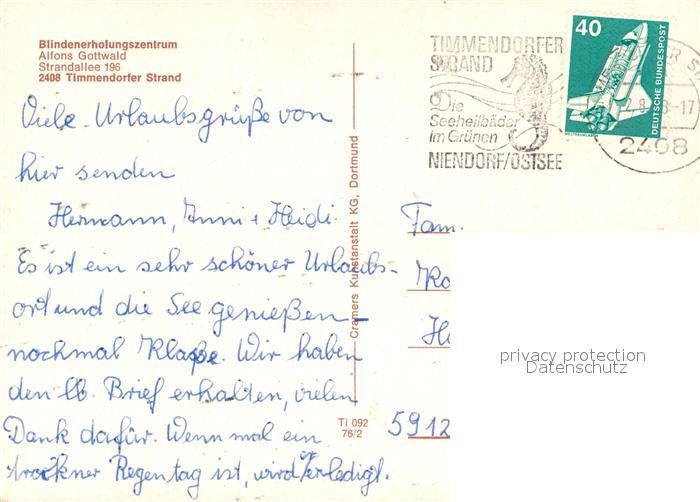 Blindenerholungszentrum
Alfons Gottwald
Strandallee 196
2408 Timmendorfer Strand
TIMMENDORFER
STRAND
Die
Seeheilbäder
im Grünen
NIENDORF/OSTSEE
40
DEUTSCHE BUNDESPOST
-17
2408
Viele Urlaubsgrüße von
hier senden
Hermann, Anni + Heidi.
Es ist ein sehr schöner Urlaubs-
ort und die See genießen
nochmal Klaße. Wir haben
den lb. Brief erhalten, vielen
Dank dafür. Wenn mal ein
trockner Regentag ist, wird er erledigt.
Cramers Kunstanstalt KG, Dortmund
Ti 092
76/2
Fam.
Ko
He
5912
privacy protection
Datenschutz